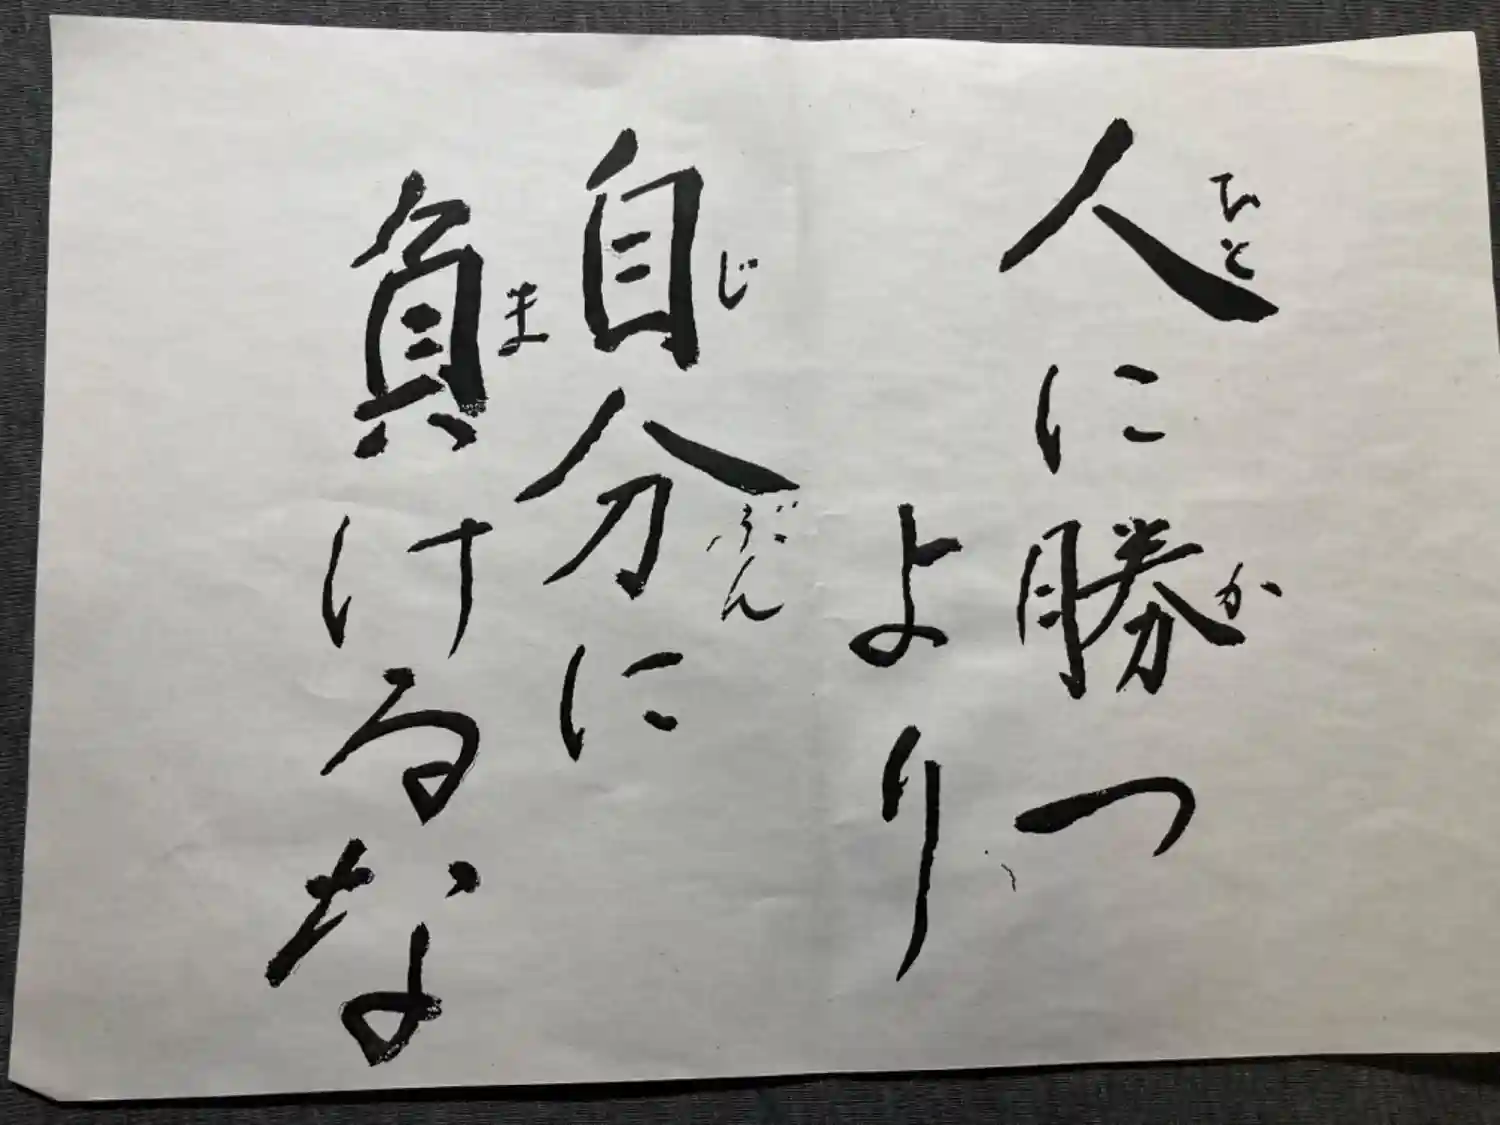 人に勝つ
より
自分に
負けるな
ひと
か
じ
ぶん
ま